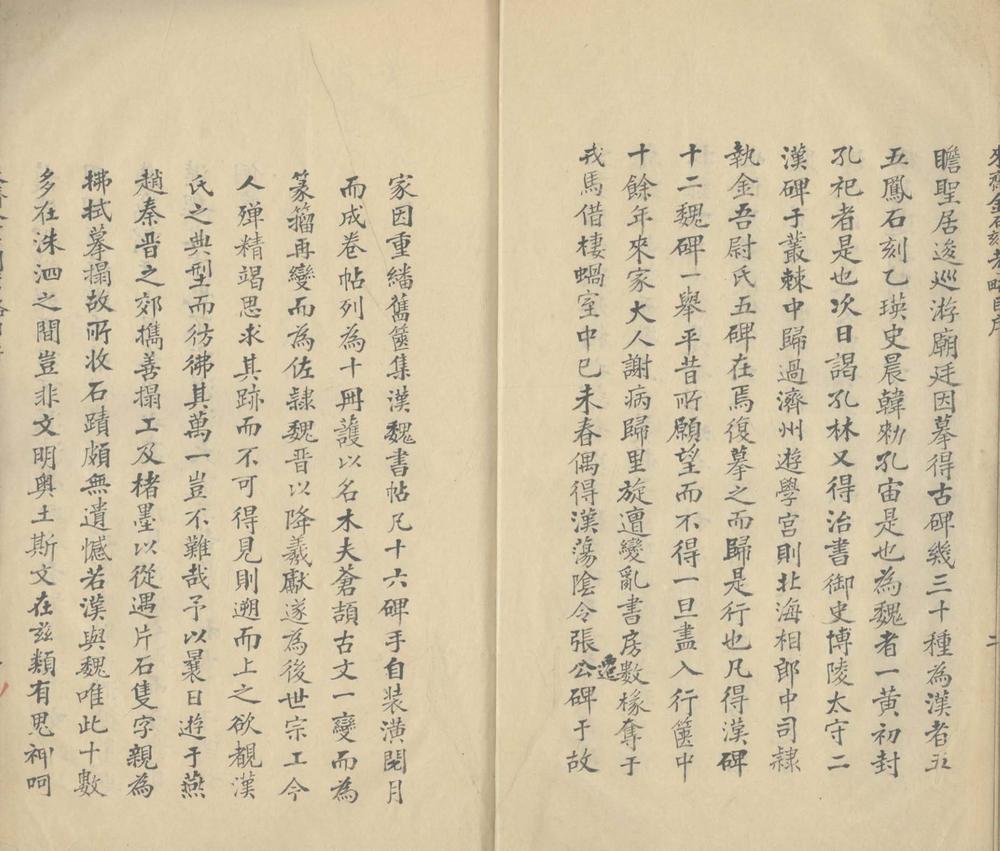 來齋金石刻考略自序
瞻聖居逡巡游廟廷因摹得古碑幾三十種為漢者五
五鳳石刻乙瑛史晨韓勑孔宙是也為魏者一黃初封
孔祀者是也次日謁孔林又得治書御史博陵太守二
漢碑于叢棘中歸過濟州遊學宮則北海相郎中司隸
執金吾尉氏五碑在焉復摹之而歸是行也凡得漢碑
十二魏碑一舉平昔所願望而不得一旦盡入行篋中
十餘年來家大人謝病歸里旋遭變亂書房數椽奪于
戎馬借棲蝸室中己未春偶得漢蕩陰令張公遷碑于故
家因重繙舊篋集漢魏書帖凡十六碑手自装潢閱月
而成卷帖列為十冊護以名木夫蒼頡古文一變而為
篆籀再變而為佐隸魏晋以降羲獻遂為後世宗工今
人殫精竭思求其跡而不可得見則遡而上之欲覩漢
氏之典型而彷彿其萬一豈不難哉予以曩日遊于燕
趙秦晋之郊攜善搨工及楮墨以從遇片石隻字親為
拂拭摹搨故所收石蹟頗無遺憾若漢與魏唯此十數
多在洙泗之間豈非文明奥土斯文在兹類有鬼神呵